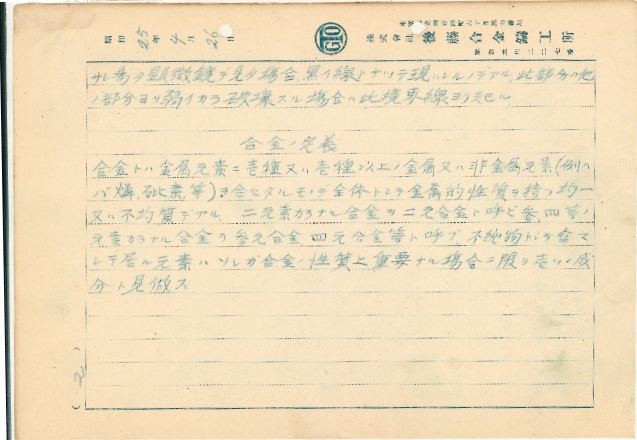 昭和 25年 4月 26日
GTO
株式會社 後藤合金鑄工所
サレ易ク顕微鏡デ見タ場合、黒イ線トナッテ現ハレルノデアル、此部分ハ他
ノ部分ヨリ弱イカラ破壊スル場合ハ此境界線ヨリ起ル
合金ノ定義
合金トハ金属元素ニ壱種又ハ壱種以上ノ金属又ハ非金属元素(例ヘ
バ燐、砒素、等)ヲ合セタルモノデ全体トシテ金属的性質ヲ持ツ均一
又ハ不均質デアル、二元素カラナル合金ヲ二元合金ト呼ビ参、四等ノ
元素カラナル合金ヲ参元合金 四元合金等ト呼ブ 不純物トシテ含マ
レテ居ル元素ハソレガ合金ノ性質上重要ナル場合ニ限リ壱ツノ成
分ト見做ス